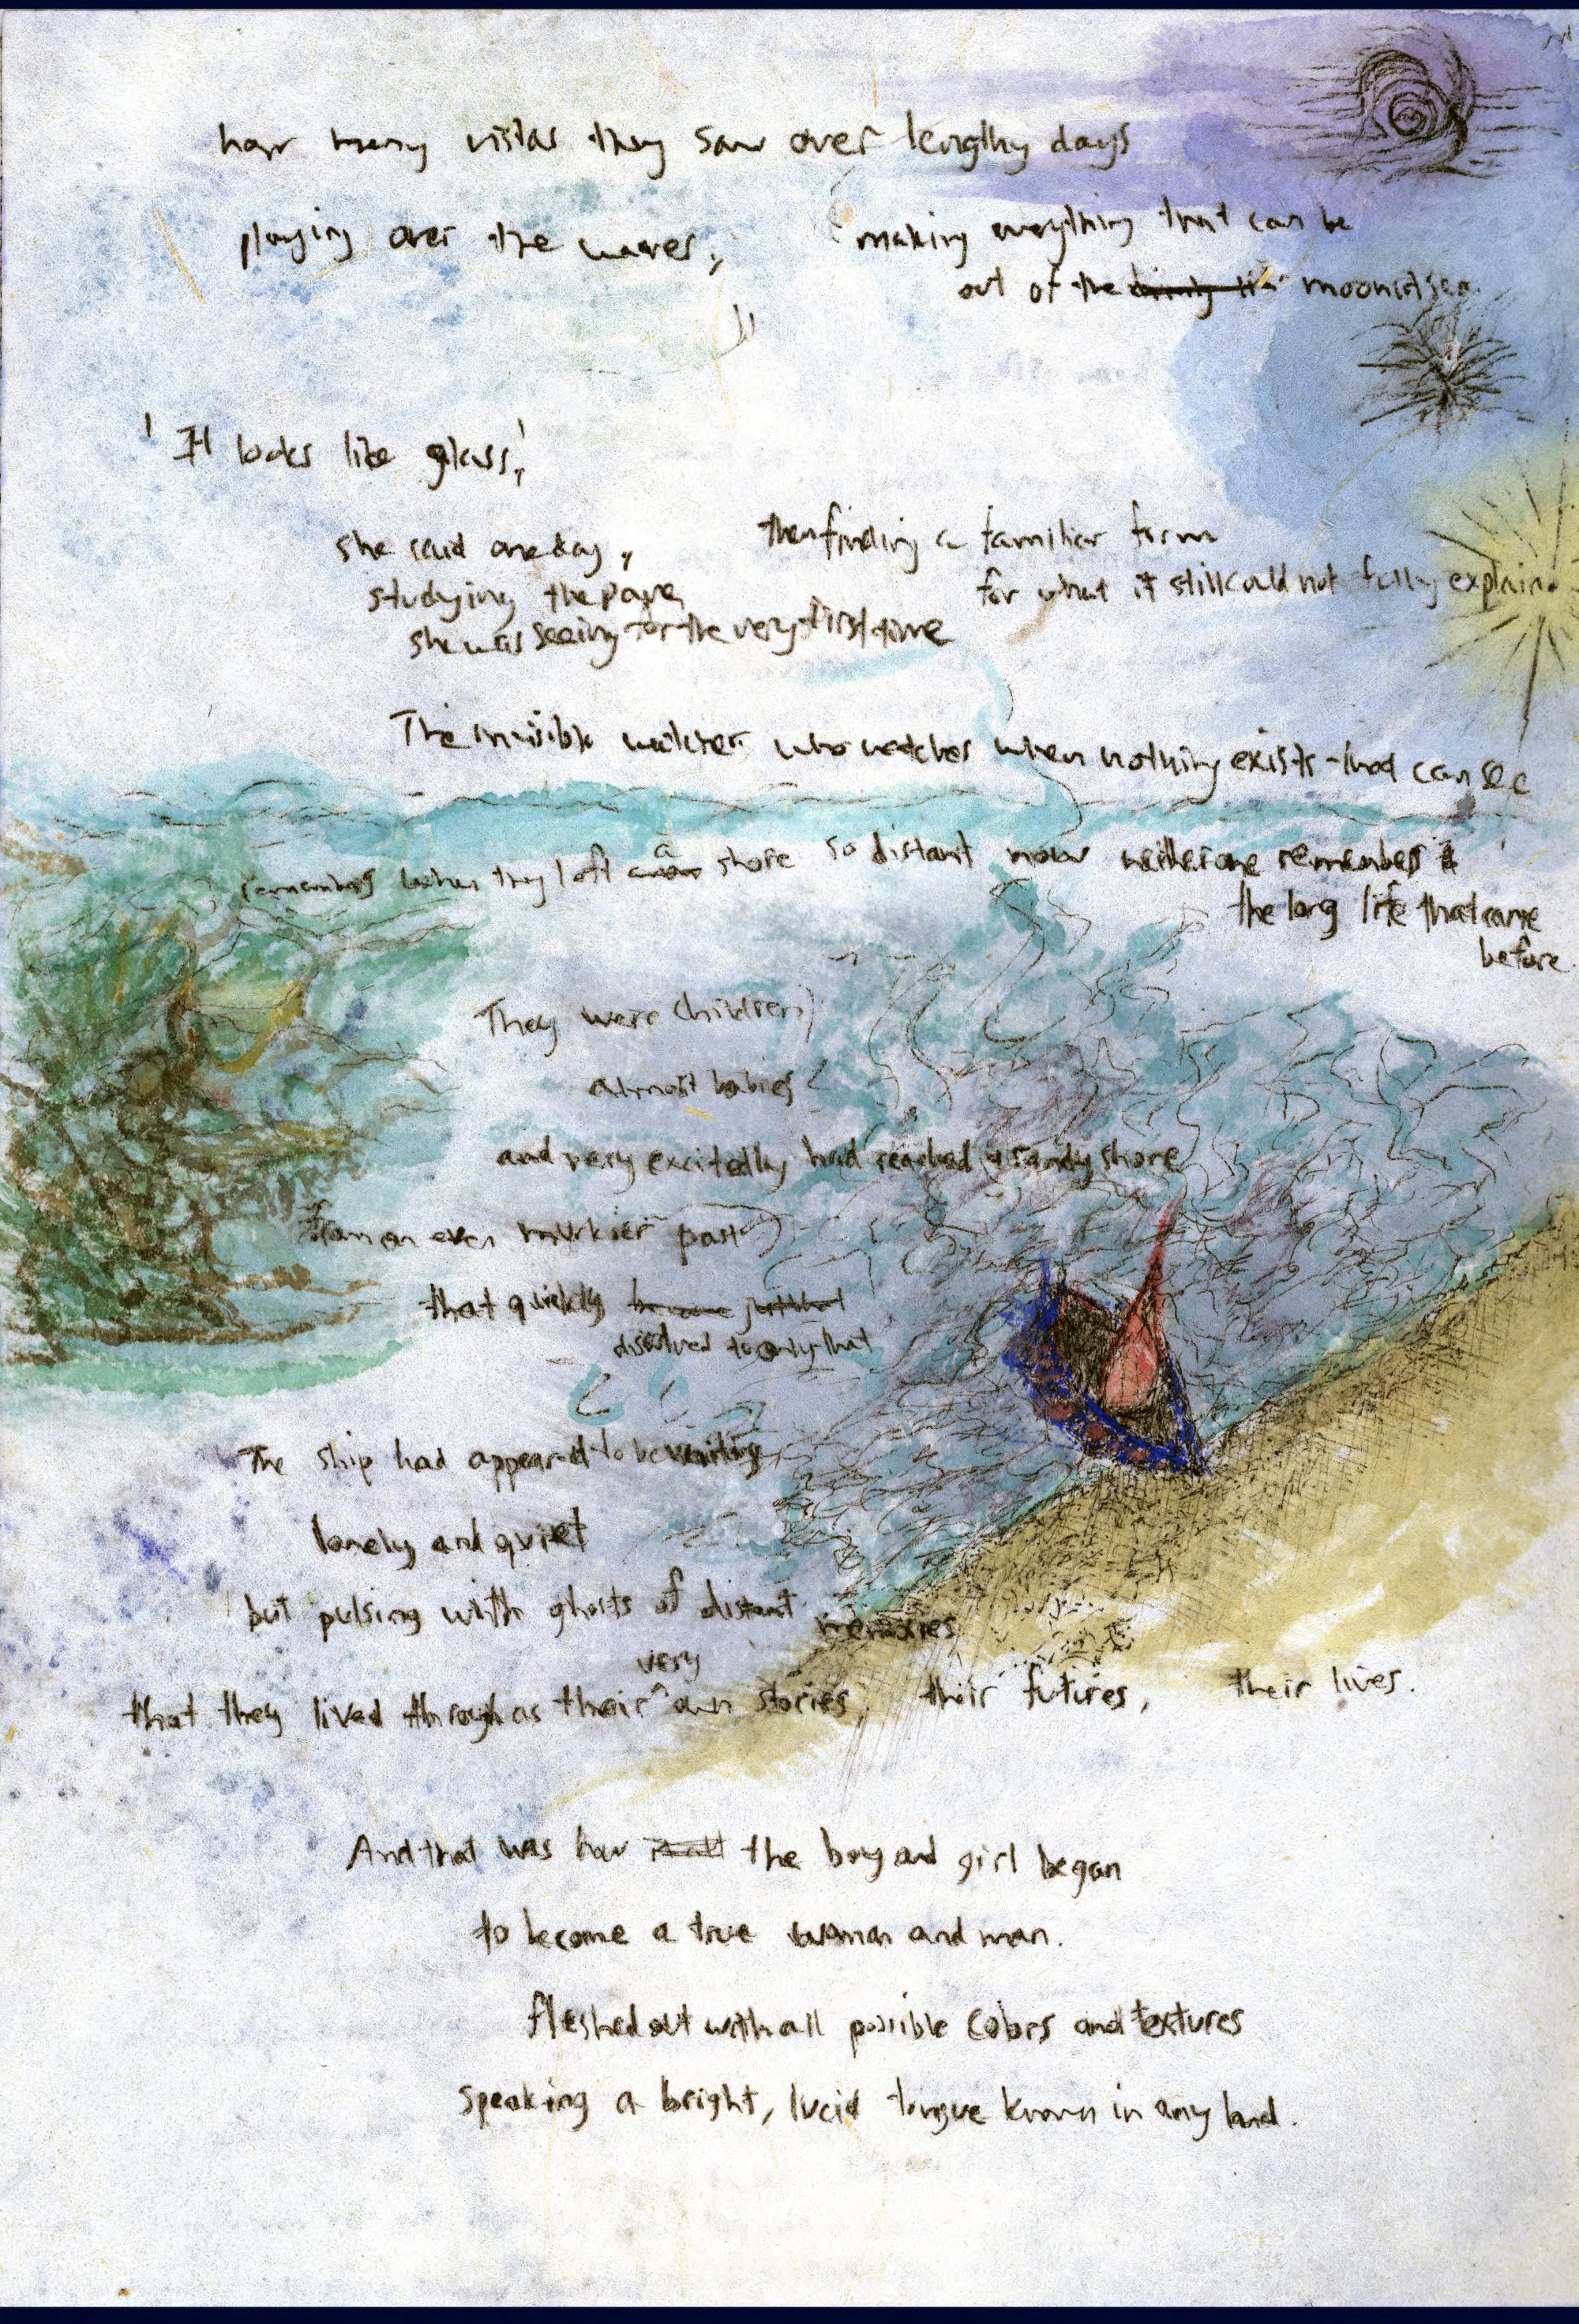 how many vistas they saw over lengthy days
playing over the waves,
making everything that can be
out of the moonlit sea.
'It looks like glass,'
she said one day,
studying the pane
she was seeing for the very first time
then finding a familiar form
for what it still could not fully explain.
The invisible watcher who watches when nothing exists that can see
remembers when they left a shore so distant now neither one remembers
the long life that came
before.
They were children,
almost babies
and very excitedly had reached a sandy shore
from an even murkier past
that quickly become just that
dissolved to only that
The ship had appeared to be waiting
lonely and quiet
but pulsing with ghosts of distant memories
very
that they lived through as their own stories, their futures, their lives.
And that was how the boy and girl began
to become a true woman and man.
fleshed out with all possible colors and textures
speaking a bright, lucid tongue known in any land.